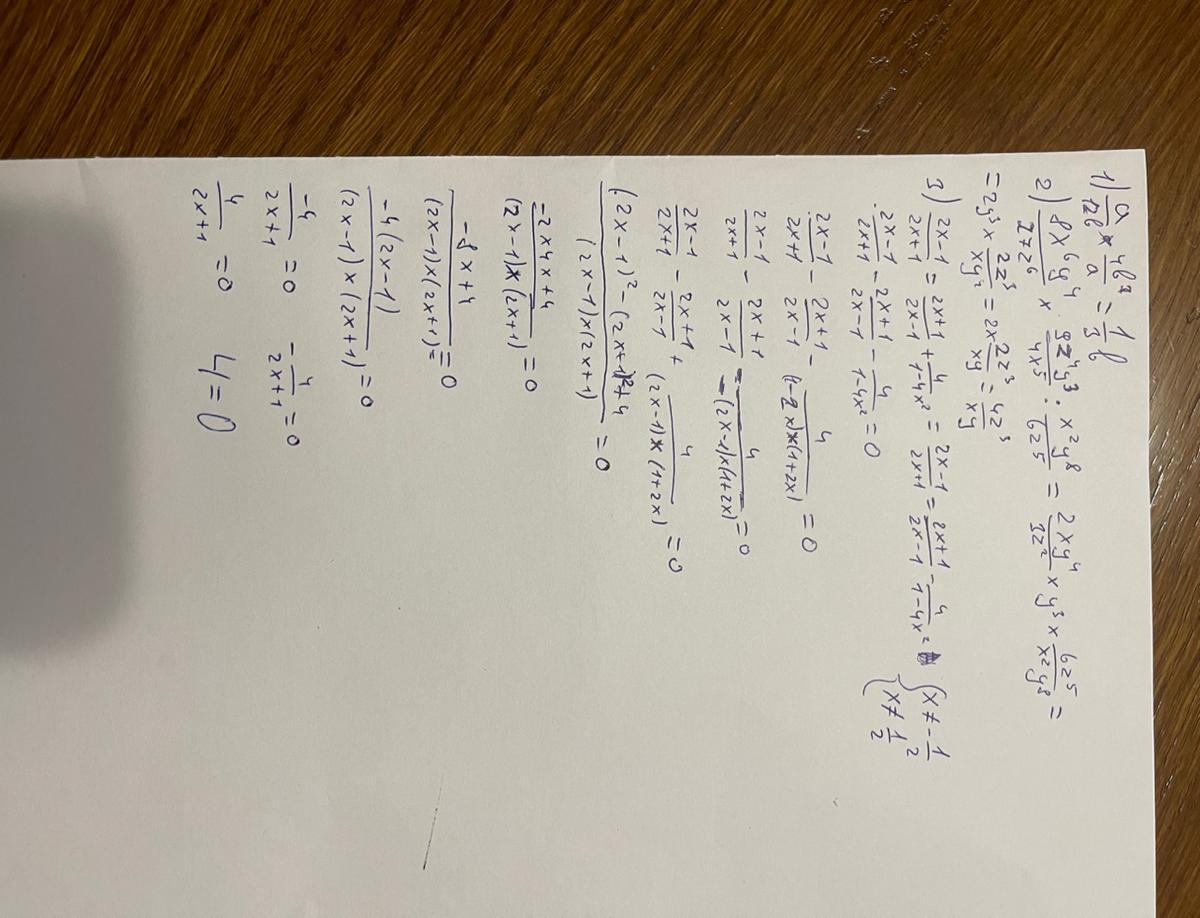 1) a/12b⁶ × 4b⁷/a = 1/3 b
2) 8x⁶y⁴/27z⁶ × 9z⁴y³/4x⁵ : x²y⁸/6z⁵ = 2xy⁴/3z² × y³ × 6z⁵/x²y⁸ =
= 2y³ × 2z³/xy⁴ = 2x 2z³/xy = 4z³/xy
3) 2x-1/2x+1 = 2x+1/2x-1 + 4/1-4x² = 2x-1/2x+1 = 2x+1/2x-1 - 4/1-4x² = { x ≠ -1/2 x ≠ 1/2
2x-1/2x+1 - 2x+1/2x-1 - 4/1-4x² = 0
2x-1/2x+1 - 2x+1/2x-1 - 4/(1-2x)×(1+2x) = 0
2x-1/2x+1 - 2x+1/2x-1 - 4/-(2x-1)×(1+2x) = 0
2x-1/2x+1 - 2x+1/2x-1 + 4/(2x-1)×(1+2x) = 0
(2x-1)² - (2x+1)² + 4/(2x-1)×(2x+1) = 0
-2x4x+4/(2x-1)×(2x+1) = 0
-8x+4/(2x-1)×(2x+1) = 0
-4(2x-1)/(2x-1)×(2x+1) = 0
-4/2x+1 = 0 -4/2x+1 = 0
4/2x+1 = 0 4 = 0